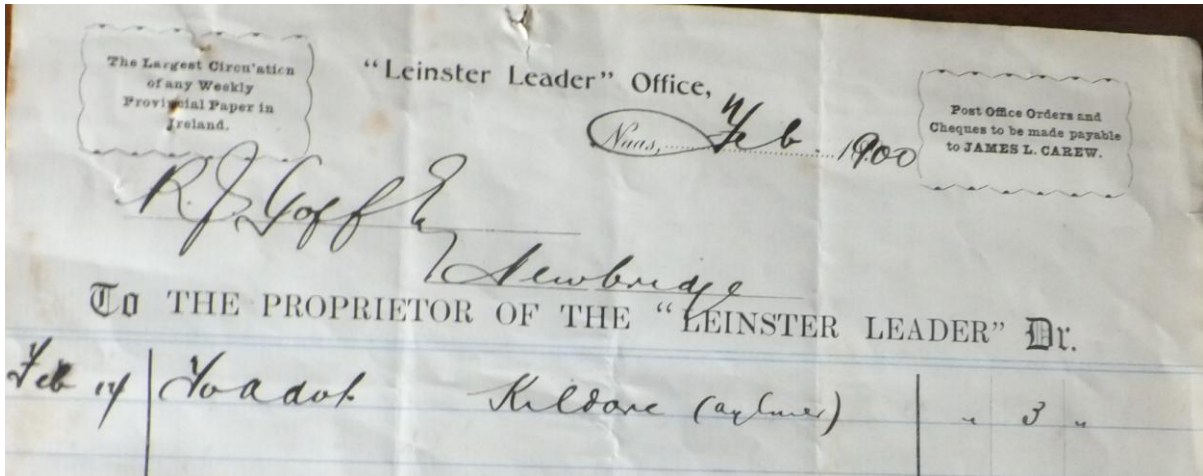 The Largest Circu'ation
of any Weekly
Provincial Paper in
Ireland.
"Leinster Leader" Office,
Naas, Feb. 1900
Post Office Orders and
Cheques to be made payable
to JAMES L. CAREW.
R. J. Goff Esq
Newbridge
To THE PROPRIETOR OF THE "LEINSTER LEADER" Dr.
Feb 14 To advt. Kildare (aylmer) " 3 "